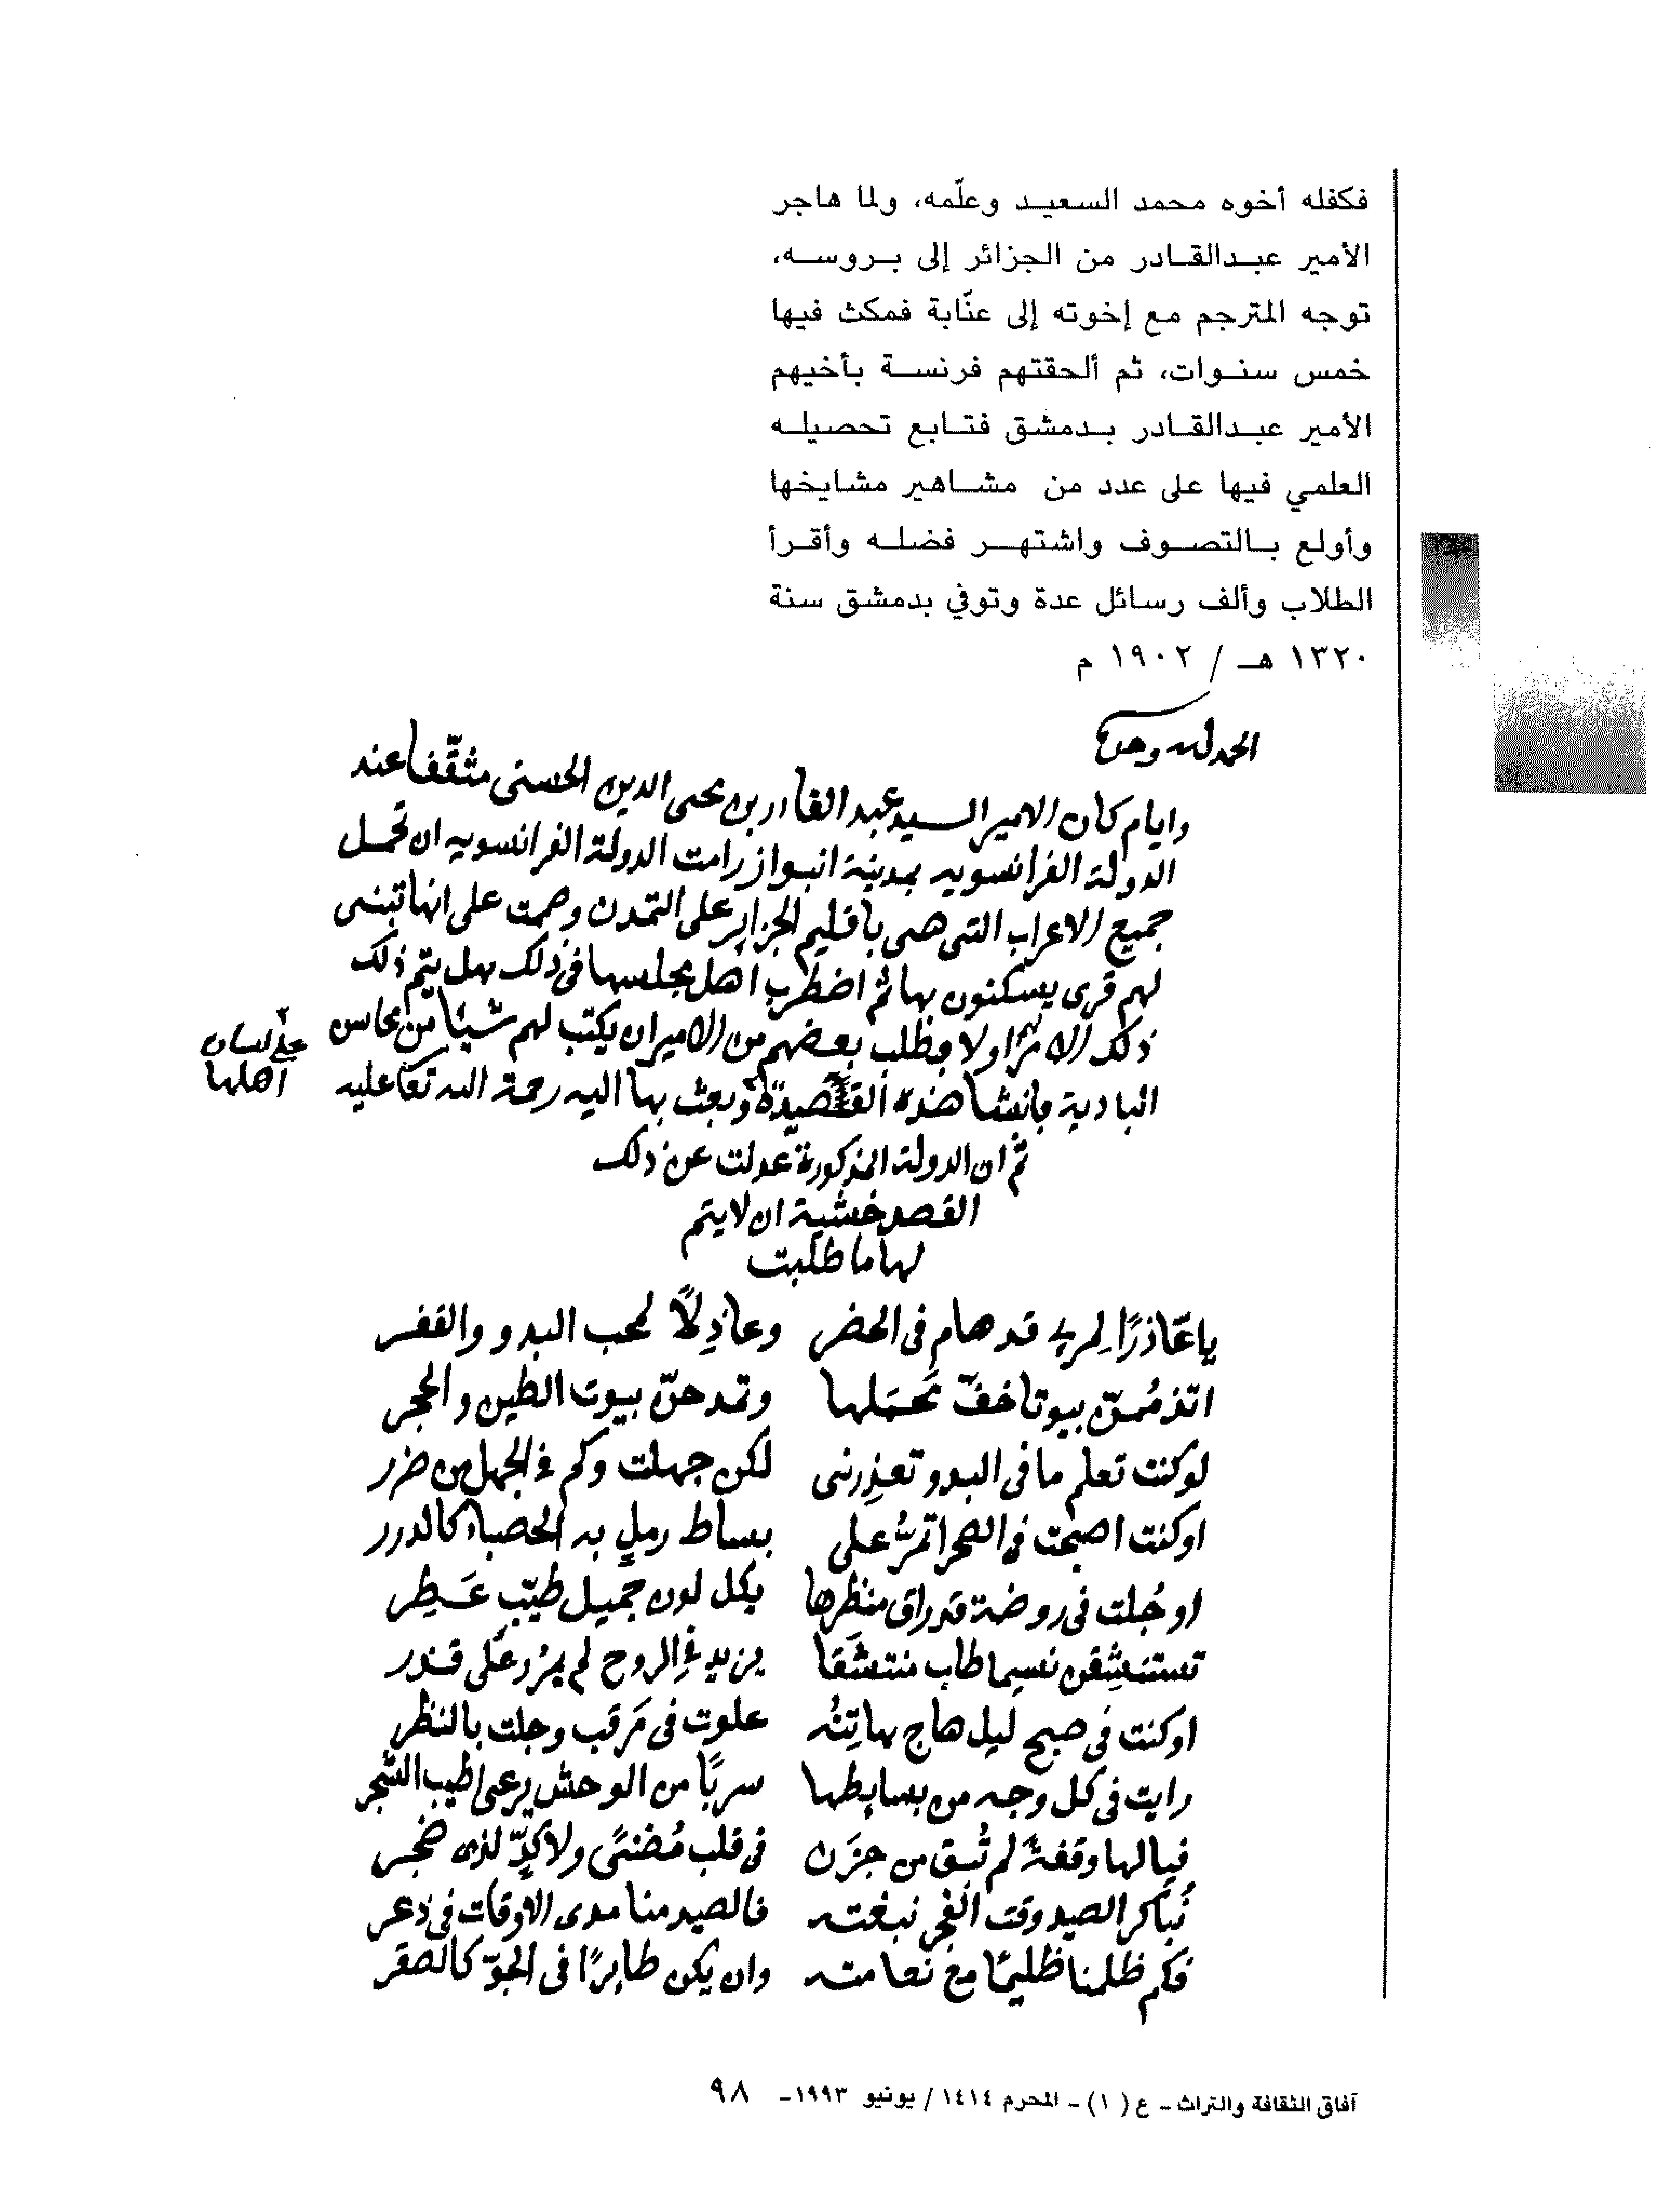 فكفله أخوه محمد السعيد وعلّمه، ولما هاجر
الأمير عبدالقادر من الجزائر إلى بروسه،
توجه المترجم مع إخوته إلى عنّابة فمكث فيها
خمس سنوات، ثم ألحقتهم فرنسة بأخيهم
الأمير عبدالقادر بدمشق فتابع تحصيله
العلمي فيها على عدد من مشاهير مشايخها
وأولع بالتصوف واشتهر فضله وأقرأ
الطلاب وألف رسائل عدة وتوفي بدمشق سنة
١٣٢٠ هـ / ١٩٠٢ م
الحمد لله وحده
وايام كان الامير السيد عبد القادر بن محى الدين الحسنى مثقّفا عند
الدولة الفرانسويه بمدينة انبواز رامت الدولة الفرانسويه ان تحمل
جميع الاعراب التى هى باقليم الجزاير على التمدن وصمت على انها تبنى
لهم قرى يسكنون بها ثم اضطرب اهل مجلسها فى ذلك هل يتم ذلك
ذلك الامر اولا وطلب بعضهم من الامير ان يكتب لهم شيئا من محاسن
البادية فانشا هذه القصيدة وبعث بها اليه رحمة الله تعا عليه
على لسان
اهلها
ثم ان الدولة المذكورة عدلت عن ذلك
القصد خشية ان لا يتم
لها ما طلبت
يا عَاذرًا لِمرىء قد هام فى الحضر وعاذِلاً لمحب البدو والقفر
اتذمُمنّ بيوتا خفّ مَحمَلها وتمدحنّ بيوت الطين والحجر
لو كنت تعلم ما فى البدو تعذِرنى لكن جهلت وكم فى الجهل من ضرر
او كنت اصبحت فى الصحرا تمرُّ على بساط رملٍ به الحصباء كالدرر
او جُلت فى روضة قد راق منظرها بكل لون جميل طيّبٍ عَطِر
تستنشِقن نسيما طاب منتشَقا يزيد فى الروح لم يمرُر على قذر
او كنت فى صبح ليل هاج هاتِنُه علوت فى مَرقَب وجلت بالنظر
رايت فى كل وجه من بسايطها سربًا من الوحش يرعى اطيب الشجر
فيا لها وقفةً لم تُبق من حزَن فى قلب مُضنًى ولا كدّ لذى ضجر
نُباكر الصيد وقت الفجر نبغته فالصيد منا مدى الاوقات فى ذعر
فكم ظلمنا ظليمًا مع نعامته وان يكن طايرًا فى الجوّ كالصقر
آفاق الثقافة والتراث - ع (١) - المحرم ١٤١٤ / يونيو ١٩٩٣- ٩٨